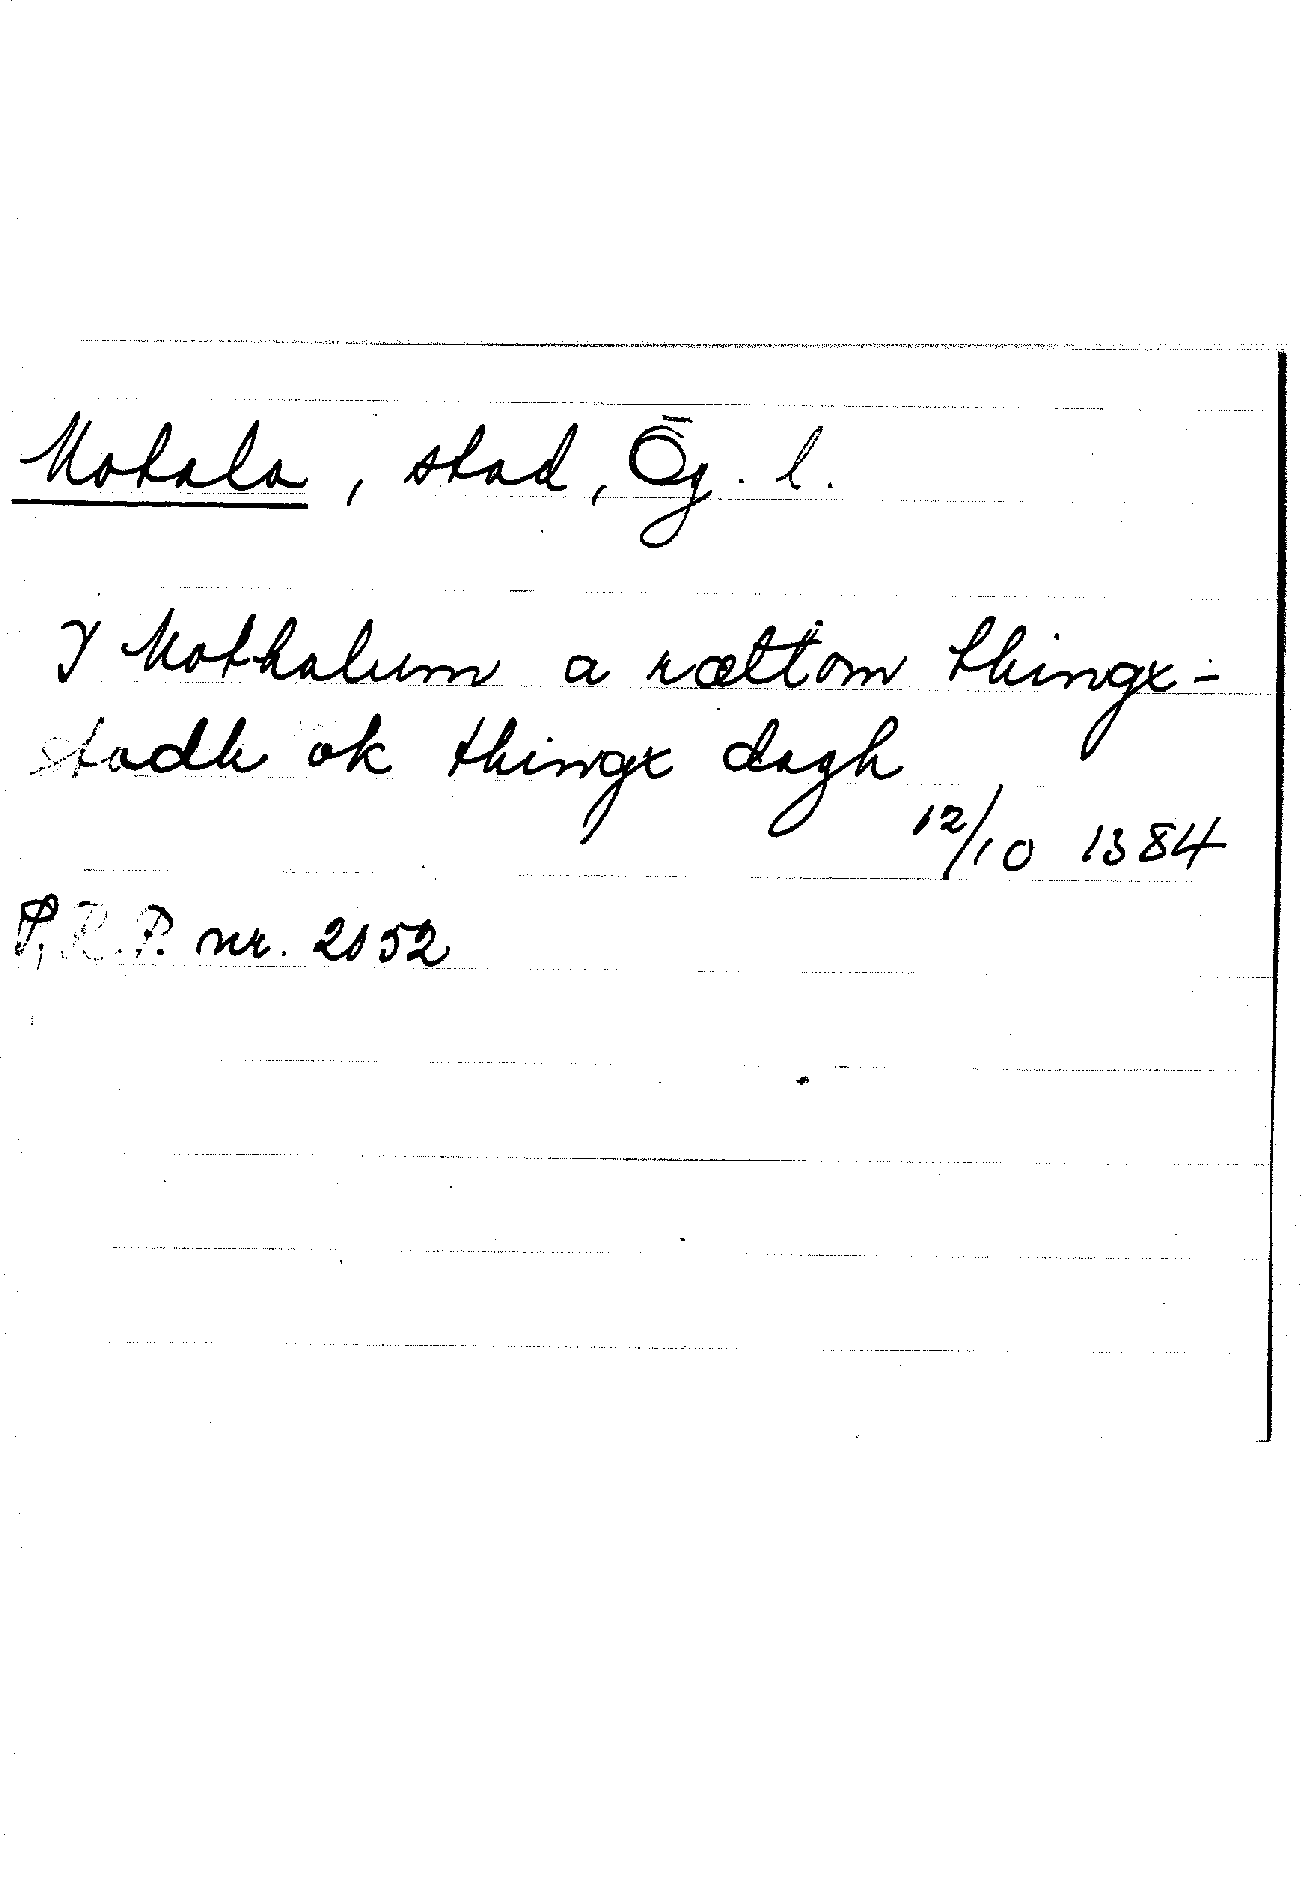 Motala, stad, Ög. l.
J Mothalum a rættom thingx-
stadh ok thingx dagh
12/10 1384
P, R. P. nr. 2152